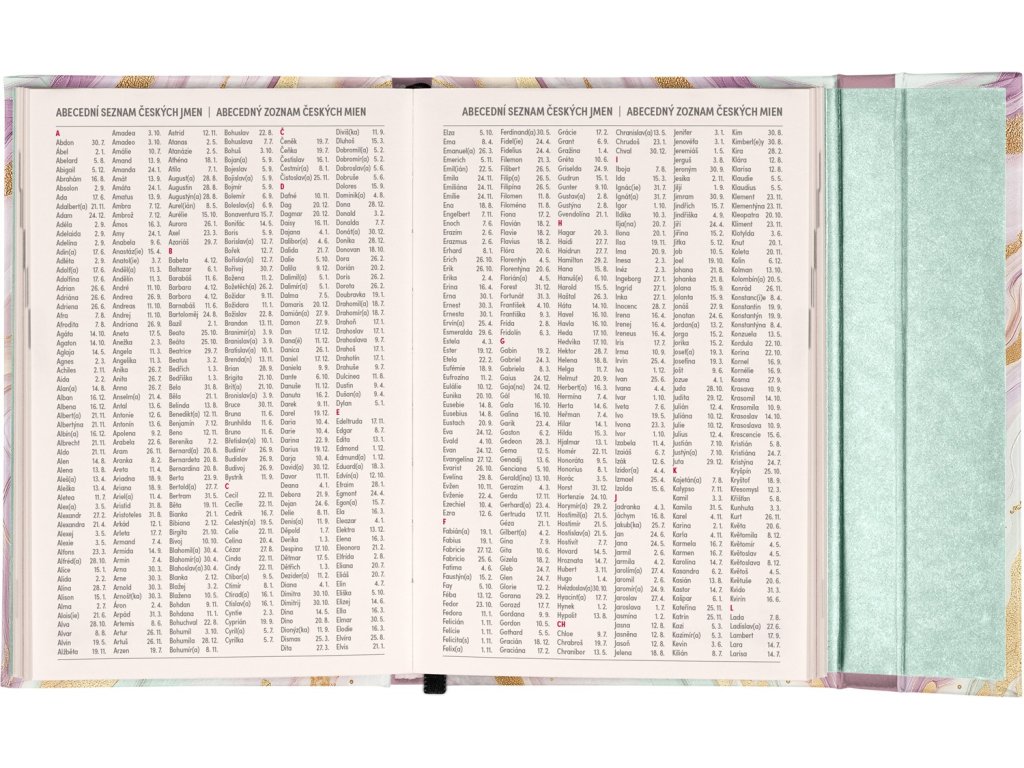 ABECEDNÍ SEZNAM ČESKÝCH JMEN | ABECEDNÝ ZOZNAM ČESKÝCH MIEN
A
Abdon 30. 7.
Ábel 2. 1.
Abelard 5. 8.
Abigail 5. 12.
Abrahám 16. 8.
Absolon 2. 9.
Ada 17. 6.
Adalbert(a) 21. 11.
Adam 24. 12.
Adéla 2. 9.
Adelaida 2. 9.
Adelina 2. 9.
Adin(a) 17. 6.
Adléta 2. 9.
Adolf(a) 17. 6.
Adolfína 17. 6.
Adrian 26. 6.
Adriána 26. 6.
Adriena 26. 6.
Afra 7. 8.
Afrodita 7. 8.
Agáta 14. 10.
Agaton 14. 10.
Aglaja 14. 5.
Agnes 2. 3.
Achiles 2. 11.
Aida 2. 2.
Alan(a) 14. 8.
Alban 16. 12.
Albena 16. 12.
Albert(a) 21. 11.
Albertýna 21. 11.
Albín(a) 16. 12.
Albrecht 21. 11.
Aldo 21. 11.
Alen 14. 8.
Alena 13. 8.
Aleš(a) 13. 4.
Aleška 13. 4.
Aletea 11. 7.
Alex(a) 3. 5.
Alexandr 27. 2.
Alexandra 21. 4.
Alexej 3. 5.
Alexie 3. 5.
Alfons 23. 3.
Alfréd(a) 28. 10.
Alice 15. 1.
Alida 2. 2.
Alina 28. 7.
Alison 15. 1.
Alma 2. 7.
Alois(ie) 21. 6.
Alva 28. 10.
Alvar 8. 8.
Alvin 19. 5.
Alžběta 19. 11.
Amadea 3. 10.
Amadeo 3. 10.
Amálie 10. 7.
Amand 13. 9.
Amanda 24. 1.
Amát 13. 9.
Amáta 24. 1.
Amatus 13. 9.
Ambra 7. 12.
Ambrož 7. 12.
Ámos 16. 3.
Amy 24. 1.
Anabela 9. 6.
Anastáz(ie) 15. 4.
Anatol(ie) 3. 7.
Anděl(a) 11. 3.
Andělín 11. 3.
André 11. 10.
Andrea 26. 9.
Andreas 11. 10.
Andrej 11. 10.
Andriana 26. 9.
Aneta 17. 5.
Anežka 2. 3.
Angela 11. 3.
Angelika 11. 3.
Anika 26. 7.
Anita 26. 7.
Anna 26. 7.
Anselm(a) 21. 4.
Antal 13. 6.
Antonie 12. 6.
Antonín 13. 6.
Apolena 9. 2.
Arabela 22. 6.
Aram 26. 11.
Aranka 8. 2.
Areta 11. 4.
Ariadna 18. 9.
Ariana 18. 9.
Ariel(a) 11. 4.
Aristid 31. 8.
Aristoteles 31. 8.
Arkád 12. 1.
Arleta 17. 7.
Armand 7. 4.
Armida 14. 9.
Armin 7. 4.
Arna 30. 3.
Arne 30. 3.
Arnold 30. 3.
Arnošt(ka) 30. 3.
Áron 2. 4.
Arpád 31. 3.
Artemis 8. 6.
Artur 26. 11.
Artuš 26. 11.
Arzen 19. 7.
Astrid 12. 11.
Atanas 2. 5.
Atanázie 2. 5.
Athéna 18. 1.
Atila 7. 1.
August(a) 28. 8.
Augustin 28. 8.
Augustýn(a) 28. 8.
Aurel(ián) 8. 5.
Aurélie 15. 10.
Aurora 26. 1.
Axel 23. 3.
Azariáš 29. 7.
B
Babeta 4. 12.
Baltazar 6. 1.
Barabáš 11. 6.
Barbara 4. 12.
Barbora 4. 12.
Barnabáš 11. 6.
Bartoloměj 24. 8.
Bazil 2. 1.
Beata 25. 10.
Beáta 25. 10.
Beatrice 29. 7.
Beatus 3. 2.
Bedřich 1. 3.
Bedřiška 1. 3.
Bela 31. 8.
Běla 21. 1.
Belinda 13. 8.
Benedikt(a) 12. 11.
Benjamin 7. 12.
Beno 12. 11.
Berenika 7. 2.
Bernard(a) 20. 8.
Bernardeta 20. 8.
Bernardina 20. 8.
Berta 23. 9.
Bertold(a) 27. 7.
Bertram 31. 5.
Běta 19. 11.
Bianka 21. 1.
Bibiana 2. 12.
Birgita 21. 10.
Bivoj 10. 10.
Blahomil(a) 30. 4.
Blahomír(a) 30. 4.
Blahoslav(a) 30. 4.
Blanka 2. 12.
Blažej 3. 2.
Blažena 10. 5.
Bohdan 9. 11.
Bohdana 11. 1.
Bohuchval 22. 8.
Bohumil 3. 10.
Bohumila 28. 12.
Bohumír(a) 8. 11.
Bohuslav 22. 8.
Bohuslava 7. 7.
Bohuš 5. 9.
Bojan(a) 5. 9.
Bojeslav 5. 9.
Bojislav(a) 5. 9.
Bojmír 5. 9.
Bolemír 6. 9.
Boleslav(a) 6. 9.
Bonaventura 15. 7.
Bonifác 14. 5.
Boris 5. 9.
Borislav(a) 12. 7.
Bořek 12. 7.
Bořislav(a) 12. 7.
Bořivoj 30. 7.
Božena 11. 2.
Božetěch(a) 26. 2.
Božidar 9. 11.
Božidara 11. 1.
Božislav 22. 8.
Brandon 13. 11.
Branimír(a) 3. 9.
Branislav(a) 3. 9.
Bratislav(a) 10. 1.
Brenda(n) 13. 11.
Brian 28. 8.
Brigita 21. 10.
Brit(a) 21. 10.
Bronislav(a) 3. 9.
Bruce 30. 11.
Bruna 11. 6.
Brunhilda 11. 6.
Bruno 11. 6.
Břetislav 10. 1.
Budimír 26. 9.
Budislav 26. 9.
Budivoj 26. 9.
Bystrík 11. 9.
C
Cecil 22. 11.
Cecílie 22. 11.
Cedrik 16. 7.
Celestýn(a) 19. 5.
Celie 22. 11.
Celina 20. 4.
Cézar 27. 8.
Cinda 22. 11.
Cindy 22. 11.
Ctibor(a) 9. 5.
Ctimír 8. 1.
Ctirad(a) 16. 1.
Ctislav(a) 16. 1.
Cyntie 2. 3.
Cyprián 19. 9.
Cyril(a) 5. 7.
Cyrilka 5. 7.
Č
Čeněk 19. 7.
Čeňka 19. 7.
Čestislav 16. 1.
Čestmír(a) 8. 1.
Čistoslav(a) 25. 11.
D
Dafné 10. 11.
Dag 20. 12.
Dagmar 20. 12.
Daisy 16. 11.
Dajana 4. 1.
Dalibor(a) 4. 6.
Dalida 21. 7.
Dalie 5. 10.
Dalila 9. 12.
Dalimil(a) 5. 1.
Dalimír(a) 5. 1.
Dalma 7. 5.
Damaris 20. 12.
Damián(a) 27. 9.
Damon 27. 9.
Dan 17. 12.
Dana(é) 11. 12.
Danica 26. 1.
Daniel 17. 12.
Daniela 9. 9.
Dante 6. 10.
Danuše 11. 12.
Danuta 16. 2.
Darek 9. 11.
Darel 19. 12.
Daria 10. 4.
Darie 10. 4.
Darina 22. 9.
Darius 19. 12.
Darja 10. 4.
David(a) 30. 12.
Davor 11. 2.
Deana 4. 1.
Debora 21. 9.
Dejan 24. 6.
Delie 8. 11.
Denis(a) 11. 9.
Děpold 1. 7.
Derika 1. 3.
Despina 17. 10.
Dětmar 17. 5.
Dětřich 1. 3.
Dezider(a) 11. 2.
Diana 4. 1.
Dimitra 30. 10.
Dimitrij 30. 10.
Dina 14. 5.
Dino 20. 8.
Dionýz(ka) 11. 9.
Dismas 25. 3.
Dita 27. 3.
Diviš(ka) 11. 9.
Dluhoš 15. 3.
Dobromil(a) 5. 2.
Dobromír(a) 5. 2.
Dobroslav(a) 5. 6.
Dobruše 5. 6.
Dolores 15. 9.
Dominik(a) 4. 8.
Dona 28. 12.
Donald 3. 2.
Donalda 7. 7.
Donát(a) 30. 12.
Donika 28. 12.
Donovan 18. 10.
Dora 26. 2.
Dorian 20. 2.
Doris 26. 2.
Dorota 26. 2.
Doubravka 19. 1.
Drahomil(a) 18. 7.
Drahomír(a) 18. 7.
Drahoň 17. 1.
Drahoslav 17. 1.
Drahoslava 9. 7.
Drahoš 17. 1.
Drahotín 17. 1.
Drahuše 9. 7.
Dulcinea 11. 8.
Dustin 9. 4.
Dušan(a) 9. 4.
Dylan 5. 1.
E
Edeltruda 17. 11.
Edgar 8. 7.
Edita 13. 1.
Edmond 1. 12.
Edmund(a) 1. 12.
Eduard(a) 18. 3.
Edvín(a) 12. 10.
Efraim 28. 1.
Egmont 24. 4.
Egon(a) 15. 7.
Ela 16. 3.
Eleazar 4. 1.
Elektra 13. 12.
Elena 16. 3.
Eleonora 21. 2.
Elfrída 2. 8.
Eliana 20. 7.
Eliáš 20. 7.
Elin 4. 7.
Eliška 5. 10.
Elizej 14. 6.
Ella 16. 3.
Elmar 30. 5.
Elodie 16. 3.
Elvíra 25. 8.
Elvis 21. 1.
ABECEDNÍ SEZNAM ČESKÝCH JMEN | ABECEDNÝ ZOZNAM ČESKÝCH MIEN
Elza 5. 10.
Ema 8. 4.
Emanuel(a) 26. 3.
Emerich 5. 11.
Emil(ián) 22. 5.
Emila 24. 11.
Emiliána 24. 11.
Emilie 24. 11.
Ena 18. 8.
Engelbert 7. 11.
Enoch 7. 6.
Erazim 2. 6.
Erazmus 2. 6.
Erhard 6. 1.
Erich 26. 10.
Erik 26. 10.
Erika 2. 4.
Erina 16. 4.
Erna 30. 1.
Ernest 30. 3.
Ernesta 30. 1.
Ervín(a) 25. 4.
Esmeralda 29. 6.
Estela 4. 3.
Ester 19. 12.
Etela 22. 2.
Eufémie 18. 9.
Eufrozína 11. 2.
Eulálie 10. 12.
Eunika 20. 10.
Eusebie 14. 8.
Eusebius 14. 8.
Eustach 20. 9.
Eva 24. 12.
Evald 4. 10.
Evan 24. 12.
Evangelína 27. 12.
Evarist 26. 10.
Evelína 29. 8.
Evžen 10. 11.
Evženie 22. 4.
Ezechiel 10. 4.
Ezra 12. 6.
F
Fabián(a) 19. 1.
Fabius 19. 1.
Fabricie 27. 12.
Fabricio 25. 6.
Fatima 4. 6.
Faustýn(a) 15. 2.
Fay 5. 10.
Féba 13. 12.
Fedor 23. 10.
Fedora 11. 1.
Felicián 1. 11.
Felicie 1. 11.
Felicita(s) 1. 11.
Felix(a) 1. 11.
Ferdinand(a) 30. 5.
Fidel(ie) 24. 4.
Fidelius 24. 4.
Filemon 21. 3.
Filibert 26. 5.
Filip(a) 26. 5.
Filipína 26. 5.
Filomen 11. 8.
Filoména 11. 8.
Fiona 17. 2.
Flavián 18. 2.
Flavie 18. 2.
Flavius 18. 2.
Flóra 20. 6.
Florentýn 4. 5.
Florentýna 20. 6.
Florián(a) 4. 5.
Forest 31. 12.
Fortunát 31. 3.
František 4. 10.
Františka 9. 3.
Frída 2. 8.
Fridolín 6. 3.
G
Gabin 19. 2.
Gabriel 24. 3.
Gabriela 8. 3.
Gaius 24. 12.
Gaja(na) 24. 12.
Gál 16. 10.
Gala 16. 10.
Galina 16. 10.
Garik 23. 4.
Gaston 6. 2.
Gedeon 28. 3.
Gema 12. 5.
Genadij 13. 6.
Genciana 5. 10.
Gerald(ína) 13. 10.
Gerazim 4. 3.
Gerda 17. 11.
Gerhard(a) 23. 4.
Gertruda 17. 11.
Géza 21. 1.
Gilbert(a) 4. 2.
Gina 7. 9.
Gita 10. 6.
Gizela 18. 2.
Gleb 24. 7.
Glen 24. 7.
Glorie 12. 2.
Gorana 29. 2.
Gorazd 17. 7.
Gordana 9. 9.
Gordon 10. 5.
Gothard 5. 5.
Gracián 18. 12.
Graciána 17. 2.
Grácie 17. 2.
Grant 6. 9.
Gražina 1. 4.
Gréta 10. 6.
Griselda 24. 9.
Gudrun 15. 1.
Gunter 9. 10.
Gustav(a) 2. 8.
Gustýna 2. 8.
Gvendolína 21. 1.
H
Hagar 20. 3.
Haidi 27. 7.
Haidrun 27. 7.
Hamilton 29. 2.
Hana 15. 8.
Hanuš(e) 6. 10.
Harold 15. 5.
Haštal 26. 3.
Háta 14. 10.
Havel 16. 10.
Havla 16. 10.
Heda 17. 10.
Hedvika 17. 10.
Hektor 28. 7.
Helena 18. 8.
Helga 11. 7.
Helmut 20. 9.
Herbert(a) 16. 3.
Hermína 7. 4.
Herta 14. 6.
Heřman 7. 4.
Hilar 14. 1.
Hilda 15. 3.
Hjalmar 13. 1.
Homér 22. 11.
Honoráta 9. 5.
Honorius 8. 1.
Horác 3. 5.
Horst 31. 12.
Hortenzie 24. 10.
Horymír(a) 29. 2.
Hostimil(a) 21. 5.
Hostimír 21. 5.
Hostislav(a) 21. 5.
Hostivít 7. 7.
Hovard 14. 5.
Hroznata 14. 7.
Hubert 3. 11.
Hugo 1. 4.
Hvězdoslav(a) 30. 10.
Hyacint(a) 17. 7.
Hynek 1. 2.
Hypolit 13. 8.
CH
Chloe 9. 7.
Chrabroš 19. 7.
Chranibor 13. 5.
Chranislav(a) 13. 5.
Chrudoš 23. 1.
Chval 30. 12.
I
Iboja 7. 8.
Ida 15. 3.
Ignác(ie) 31. 7.
Ignát(a) 31. 7.
Igor 1. 10.
Ildika 10. 3.
Ilja(na) 20. 7.
Ilona 20. 1.
Ilsa 19. 11.
Ima 20. 9.
Inesa 2. 3.
Inéz 2. 3.
Ingeborg 27. 1.
Ingrid 27. 1.
Inka 27. 1.
Inocenc 28. 7.
Irena 16. 4.
Irenej 16. 4.
Ireneus 16. 4.
Iris 17. 7.
Irma 10. 9.
Irvin 25. 4.
Iva 1. 12.
Ivan 25. 6.
Ivana 4. 4.
Ivar 1. 10.
Iveta 7. 6.
Ivo 19. 5.
Ivona 23. 3.
Ivor 1. 10.
Izabela 11. 4.
Izaiáš 6. 7.
Izák 12. 6.
Izidor(a) 4. 4.
Izmael 25. 4.
Izolda 15. 6.
J
Jadranka 4. 3.
Jáchym 16. 8.
Jakub(ka) 25. 7.
Jan 24. 6.
Jana 24. 5.
Jarmil 2. 6.
Jarmila 4. 2.
Jarolím(a) 27. 4.
Jaromil 2. 6.
Jaromír(a) 24. 9.
Jaroslav 27. 4.
Jaroslava 1. 7.
Jasmína 1. 2.
Jasna 12. 8.
Jasněna 12. 8.
Jasoň 12. 8.
Jelena 18. 8.
Jenifer 3. 1.
Jenovéfa 3. 1.
Jeremiáš 1. 5.
Jerguš 3. 8.
Jeroným 30. 9.
Jesika 2. 11.
Jiljí 1. 9.
Jimram 30. 9.
Jindřich 15. 7.
Jindřiška 4. 9.
Jiří 24. 4.
Jiřina 15. 2.
Jitka 5. 12.
Job 10. 5.
Joel 19. 10.
Johana 21. 8.
Johanka 21. 8.
Jolana 15. 9.
Jolanta 15. 9.
Jonáš 27. 9.
Jonatan 24. 6.
Jordan(a) 13. 2.
Jorga 15. 2.
Jorika 15. 2.
Josef(a) 19. 3.
Josefína 19. 3.
Jošt 9. 6.
Jozue 4. 1.
Juda 28. 10.
Judita 29. 12.
Julián 12. 4.
Juliána 10. 12.
Julie 10. 12.
Julius 12. 4.
Justin 7. 10.
Justýn(a) 7. 10.
Juta 29. 12.
K
Kajetán(a) 7. 8.
Kalypso 7. 11.
Kamil 3. 3.
Kamila 31. 5.
Karel 4. 11.
Karina 2. 1.
Karla 4. 11.
Karmela 16. 7.
Karmen 16. 7.
Karolína 14. 7.
Kasandra 6. 2.
Kasián 13. 8.
Kastor 14. 7.
Kašpar 6. 1.
Kateřina 25. 11.
Katrin 25. 11.
Kazi 5. 3.
Kazimír(a) 5. 3.
Kevin 3. 6.
Kilián 8. 7.
Kim 30. 8.
Kimberl(e)y 30. 8.
Kira 28. 2.
Klára 12. 8.
Klarisa 12. 8.
Klaudie 5. 5.
Klaudius 5. 5.
Klement 23. 11.
Klementýna 23. 11.
Kleopatra 20. 10.
Kliment 23. 11.
Klotylda 3. 6.
Knut 20. 1.
Koleta 20. 11.
Kolin 6. 12.
Kolman 13. 10.
Kolombín(a) 20. 5.
Konrád 26. 11.
Konstanc(i)e 8. 4.
Konstantin 19. 9.
Konstantýn 19. 9.
Konstantýna 8. 4.
Konzuela 13. 5.
Kordula 22. 10.
Korina 22. 10.
Kornel 16. 9.
Kornélie 16. 9.
Kosma 27. 9.
Krasava 10. 9.
Krasomil 14. 10.
Krasomila 10. 9.
Krasoslav 14. 10.
Krasoslava 10. 9.
Krescencie 15. 6.
Kristián 5. 8.
Kristiána 24. 7.
Kristýna 24. 7.
Kryšpín 25. 10.
Kryštof 18. 9.
Křesomysl 12. 3.
Křišťan 5. 8.
Kunhuta 3. 3.
Kurt 26. 11.
Květa 20. 6.
Květomila 8. 12.
Květomír 4. 5.
Květoslav 4. 5.
Květoslava 8. 12.
Květoš 4. 5.
Květuše 20. 6.
Kvido 31. 3.
Kvirin 16. 6.
L
Lada 7. 8.
Ladislav(a) 27. 6.
Lambert 17. 9.
Lara 14. 7.
Larisa 14. 7.